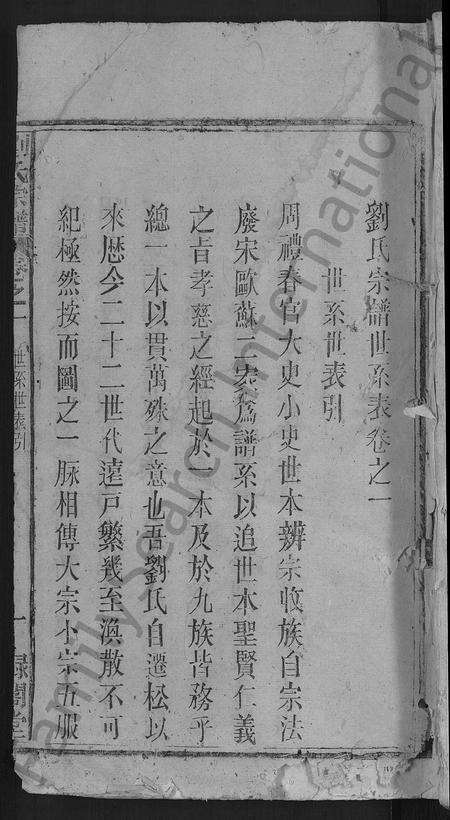 劉氏宗譜世系表卷之一
世系世表引
周禮春官大史小史世本辨宗收族自宗法
廢宋歐蘇二宗爲譜系以追世本聖賢仁義
之旨孝慈之經起於一本及於九族皆務乎
總一本以貫萬殊之意也吾劉氏自遷松以
來歷今二十二世代遠戸繁幾至渙散不可
紀極然按而圖之一脉相傳大宗小宗五服
劉氏宗譜 卷之一 世系世表引 一 閣堂
FamilySearch International